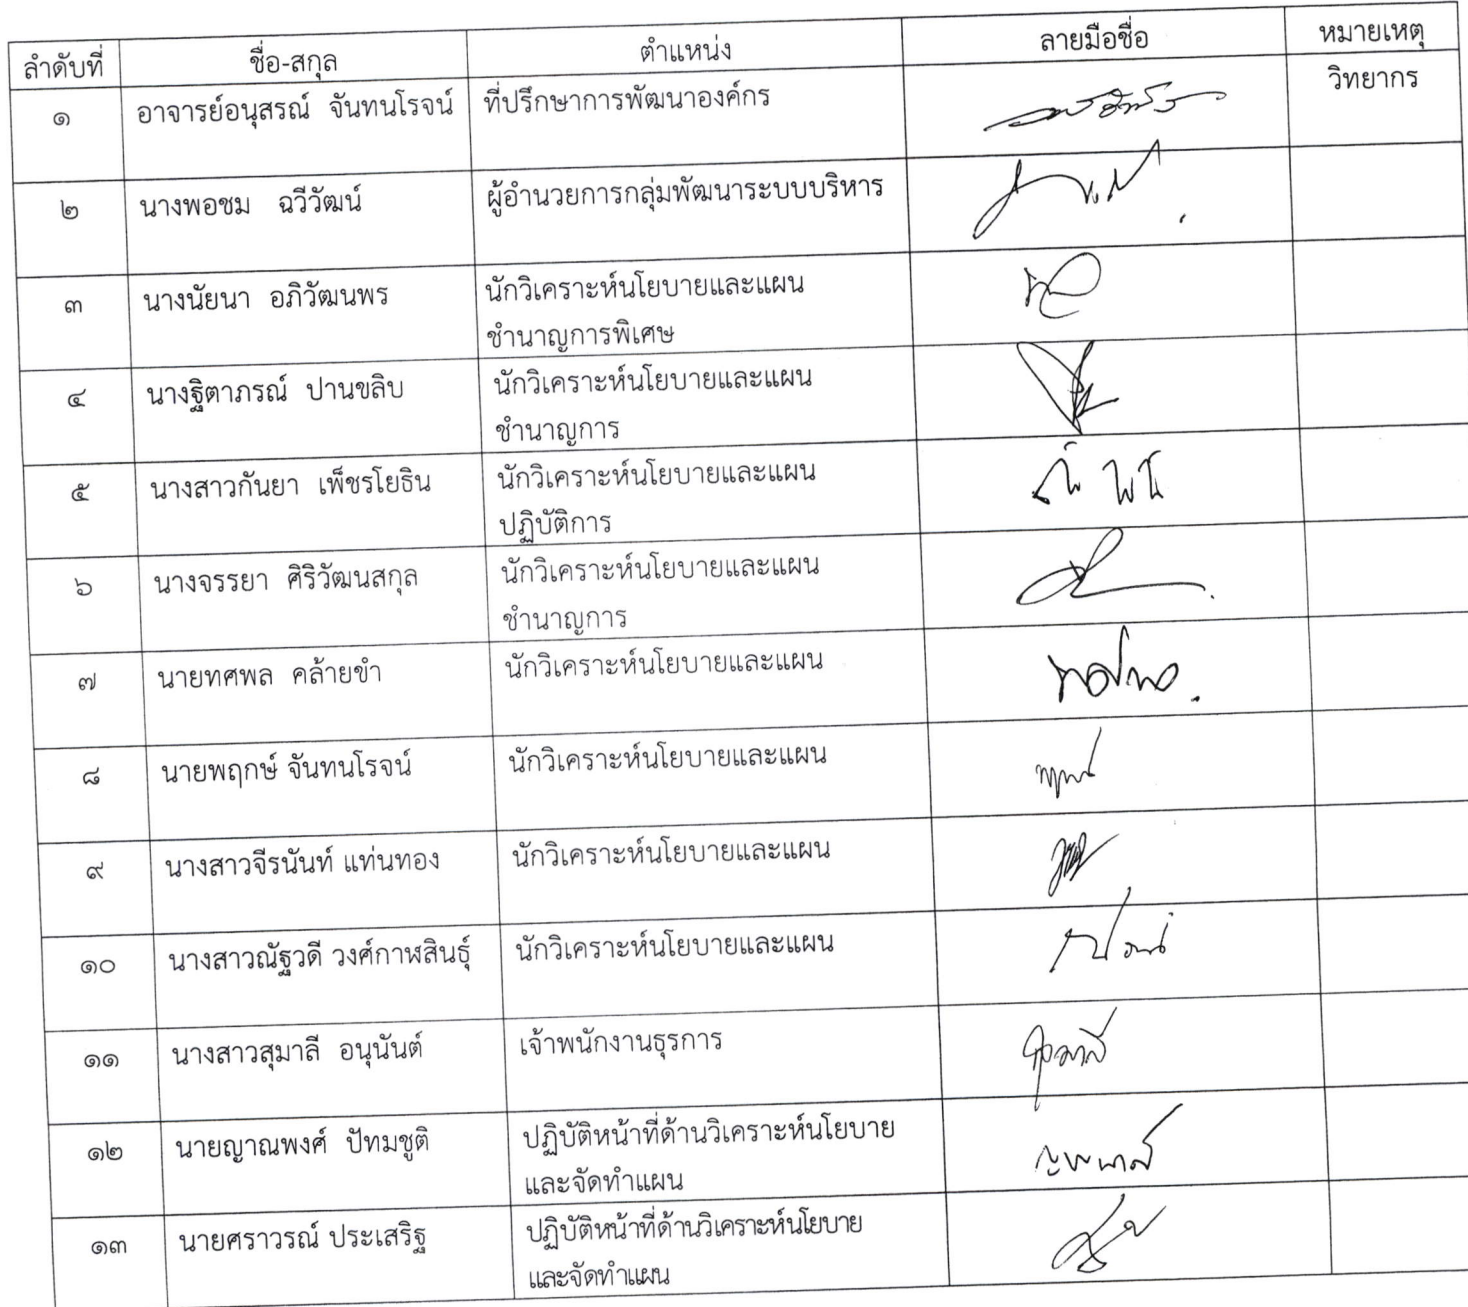 ลำดับที่ ชื่อ-สกุล ตำแหน่ง ลายมือชื่อ หมายเหตุ
๑ อาจารย์อนุสรณ์ จันทนโรจน์ ที่ปรึกษาการพัฒนาองค์กร วิทยากร
๒ นางพอชม ฉวีวัฒน์ ผู้อำนวยการกลุ่มพัฒนาระบบบริหาร
๓ นางนัยนา อภิวัฒนพร นักวิเคราะห์นโยบายและแผน
ชำนาญการพิเศษ
๔ นางฐิตาภรณ์ ปานขลิบ นักวิเคราะห์นโยบายและแผน
ชำนาญการ
๕ นางสาวกันยา เพ็ชรโยธิน นักวิเคราะห์นโยบายและแผน
ปฏิบัติการ
๖ นางจรรยา ศิริวัฒนสกุล นักวิเคราะห์นโยบายและแผน
ชำนาญการ
๗ นายทศพล คล้ายขำ นักวิเคราะห์นโยบายและแผน ทศพล
๘ นายพฤกษ์ จันทนโรจน์ นักวิเคราะห์นโยบายและแผน
๙ นางสาวจีรนันท์ แท่นทอง นักวิเคราะห์นโยบายและแผน
๑๐ นางสาวณัฐวดี วงศ์กาฬสินธุ์ นักวิเคราะห์นโยบายและแผน
๑๑ นางสาวสุมาลี อนุนันต์ เจ้าพนักงานธุรการ สุมาลี
๑๒ นายญาณพงศ์ ปัทมชูติ ปฏิบัติหน้าที่ด้านวิเคราะห์นโยบาย
และจัดทำแผน
๑๓ นายศราวรณ์ ประเสริฐ ปฏิบัติหน้าที่ด้านวิเคราะห์นโยบาย
และจัดทำแผน